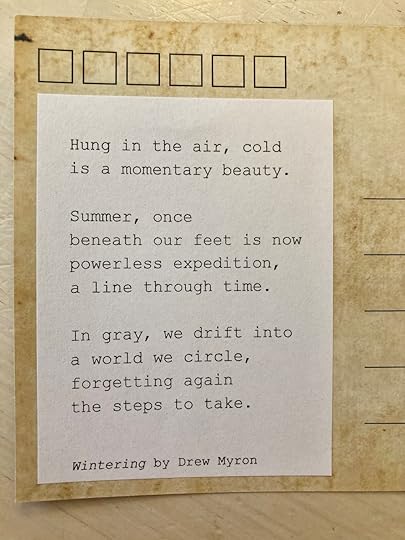 Hung in the air, cold
is a momentary beauty.
Summer, once
beneath our feet is now
powerless expedition,
a line through time.
In gray, we drift into
a world we circle,
forgetting again
the steps to take.
Wintering by Drew Myron